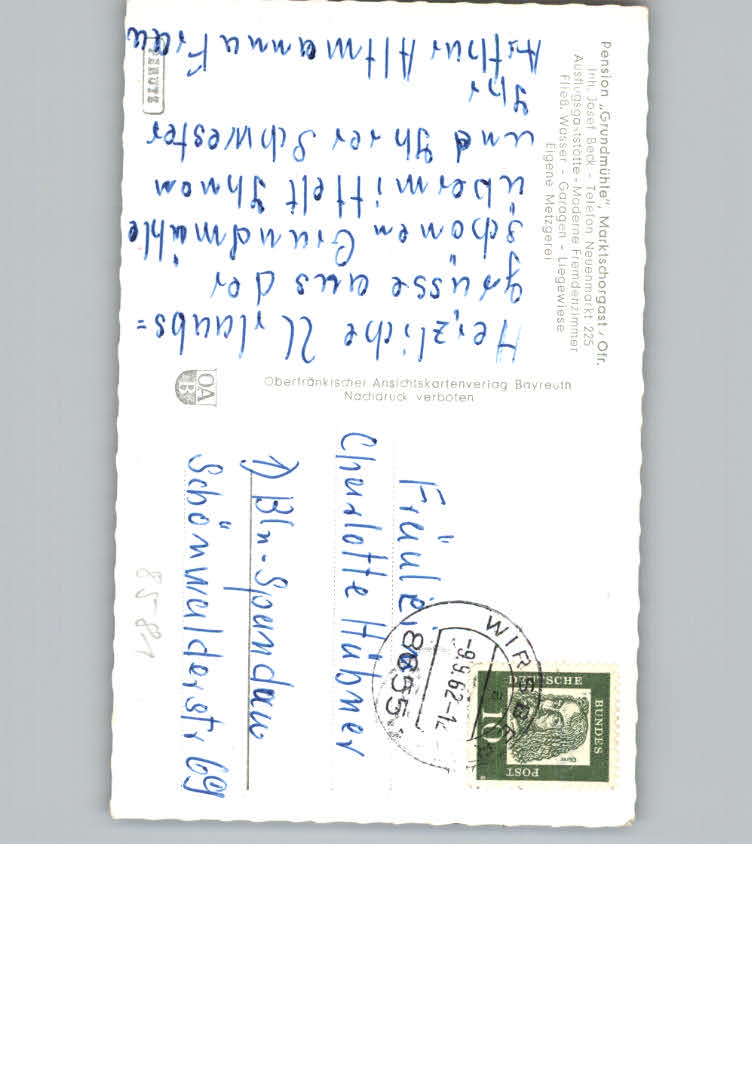 Pension „Grundmühle", Marktschorgast / Ofr.
Inh. Josef Beck - Telefon Neuenmarkt 225
Ausflugsgaststätte - Moderne Fremdenzimmer
Fließ. Wasser - Garagen - Liegewiese
Eigene Metzgerei
Herzliche Urlaubs=
grüsse aus der
schönen Grundmühle
übermittelt Ihnen
und Ihrer Schwester
Ihr
Arthur Altmann u Frau
PERUTZ
Oberfränkischer Ansichtskartenverlag Bayreuth
Nachdruck verboten
OA
B
Fräulein
Charlotte Hübner
1) Bln-Spandau
Schönwalderstr 69
85-81
WIRSBERG
-9.9.62-12
a
8655
DEUTSCHE
BUNDES
POST
10
Dürer